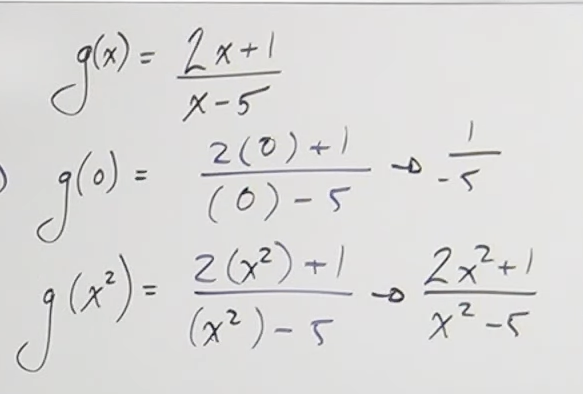 g(x) = (2x+1)/(x-5)
) g(0) = (2(0)+1)/((0)-5) → 1/-5
g(x²) = (2(x²)+1)/((x²)-5) → (2x²+1)/(x²-5)